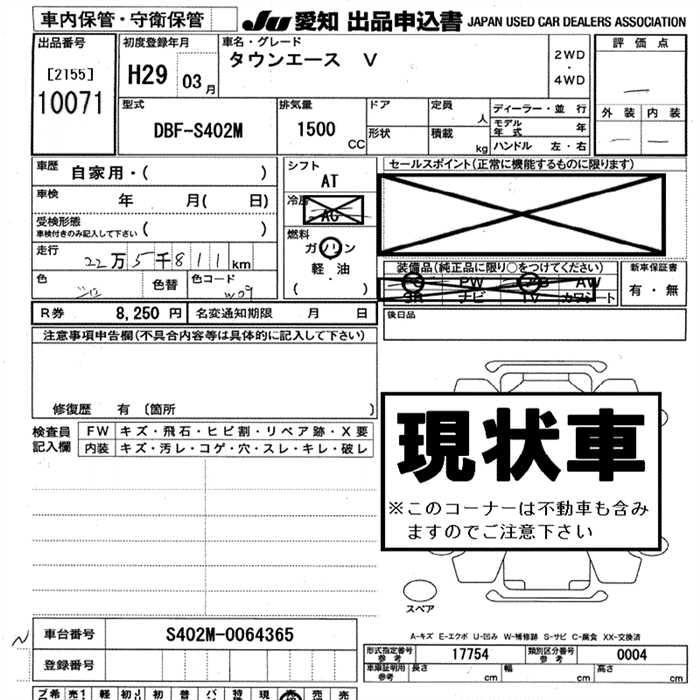 車内保管・守衛保管
JU 愛知 出品申込書 JAPAN USED CAR DEALERS ASSOCIATION
出品番号
[2155]
10071
初度登録年月
H29 03月
車名・グレード
タウンエース V
2WD
・
4WD
評価点
外装 内装
型式
DBF-S402M
排気量
1500 CC
ドア
形状
定員 人
積載 kg
ディーラー・並行
モデル年式 年
ハンドル 左・右
車歴 自家用・( )
車検 年 月( 日)
受検形態
車検付きのみ記入して下さい ( )
走行 22万5千811km
色 色替 色コード
W09
シフト
AT
冷房
AC
燃料
ガソリン
軽油
( )
セールスポイント(正常に機能するものに限ります)
装備品(純正品に限り○をつけてください)
PW AW
SR ナビ TV カワシート
新車保証書
有・無
後日品
R券 8,250円 名変通知期限 月 日
注意事項申告欄(不具合内容等は具体的に記入して下さい)
修復歴 有 〔箇所 〕
検査員記入欄
FW キズ・飛石・ヒビ割・リペア跡・X要
内装 キズ・汚レ・コゲ・穴・スレ・キレ・破レ
現状車
※このコーナーは不動車も含み
ますのでご注意下さい
スペア
A-キズ E-エクボ U-凹み W-補修跡 S-サビ C-腐食 XX-交換済
車台番号 S402M-0064365
登録番号
形式指定番号
参考
17754
類別区分番号
参考
0004
車庫証明用
参考
長さ cm 幅 cm 高さ cm